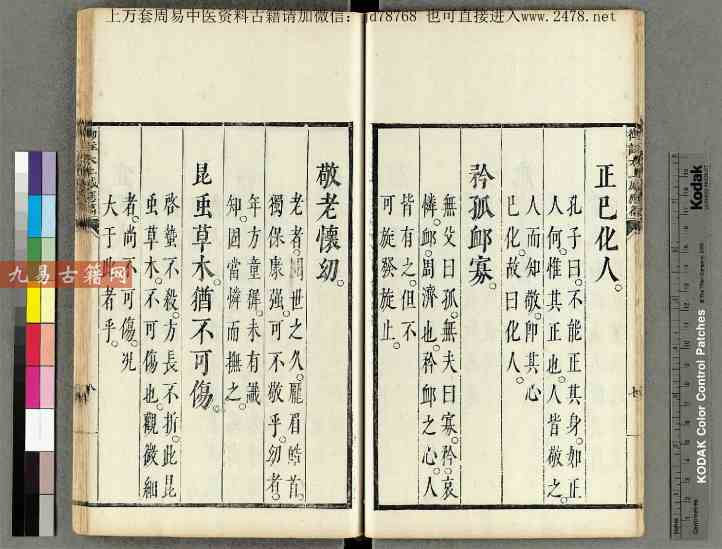 上万套周易中医资料古籍请加微信：jd78768 也可直接进入www.2478.net
正己化人。
孔子曰。不能正其身。如正
人何。惟其正也。人皆敬之。
人而知敬。卽其心
已化。故曰化人。
矜孤卹寡。
無父曰孤。無夫曰寡。矜。哀
憐。卹。周濟也。矜卹之心。人
皆有之。但不
可旋發旋止。
敬老懷幼。
老者。閱世之久。龐眉皓首。
獨保康强。可不敬乎。幼者。
年方童穉。未有識
知。固當憐而撫之。
昆虫草木。猶不可傷。
啓蟄不殺。方長不折。此昆
虫草木。不可傷也。觀微細
者。尚不可傷。况
大于此者乎。
七
八
九易古籍网
Kodak
KODAK Color Control Patches